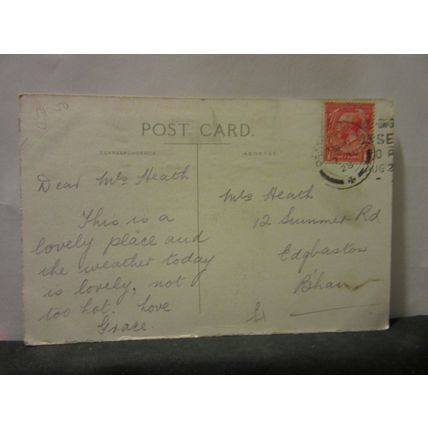 POST CARD.
CORRESPONDENCE
ADDRESS
Dear Mrs Heath
This is a
lovely place and
the weather today
is lovely, not
too hot. Love
Grace.
Mrs Heath
12 Summer Rd
Edgbaston
B'ham